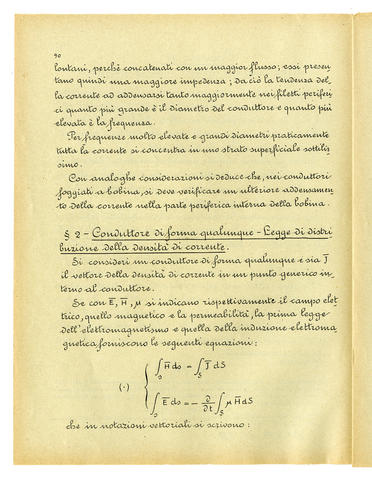 90
lontani, perchè concatenati con un maggior flusso; essi presen
tano quindi una maggiore impedenza; da ciò la tendenza del
la corrente ad addensarsi tanto maggiormente nei filetti periferi
ci quanto più grande è il diametro del conduttore e quanto più
elevata è la frequenza.
Per frequenze molto elevate e grandi diametri praticamente
tutta la corrente si concentra in uno strato superficiale sottilis
simo.
Con analoghe considerazioni si deduce che, nei conduttori
foggiati a bobina, si deve verificare un ulteriore addensamen
to della corrente nella parte periferica interna della bobina.
§ 2 - Conduttore di forma qualunque - Legge di distri
buzione della densità di corrente.
Si consideri un conduttore di forma qualunque e sia J̄
il vettore della densità di corrente in un punto generico in
terno al conduttore.
Se con Ē, H̄, μ si indicano rispettivamente il campo elet
trico, quello magnetico e la permeabilità, la prima legge
dell'elettromagnetismo e quella della induzione elettroma
gnetica forniscono le seguenti equazioni:
∫ₛ H̄ ds = ∫_S J̄ dS
(·)
∫ₛ Ē ds = - ∂/∂t ∫_S μ H̄ dS
che in notazioni vettoriali si scrivono: